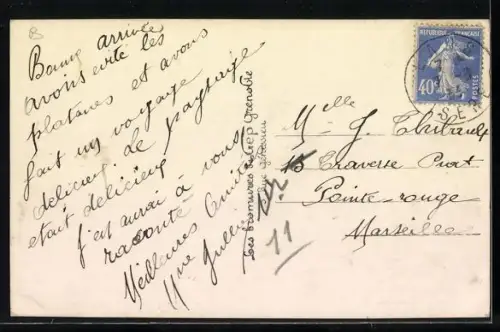 Bonne arrivée
avons evité les
platanes et avons
fait un voyage
delicieux. Le paysage
etait delicieux
j'ai aurai à vous
raconté
Meilleures Amitiés
Mme Jullien
Les Bromures
Grenoble
REPUBLIQUE FRANÇAISE
40c
POSTES
Melle
M- J. Thibault
Traverse Prat
Pointe-rouge
Marseille
11